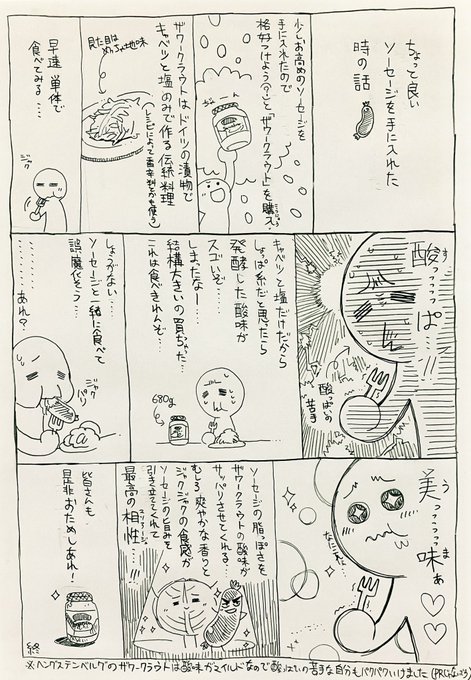 ちょっと良い
ソーセージを手に入れた
時の話
少しお高めのソーセージを
手に入れたので
格好つけよう?と「ザワークラウト」を購入
ザワークラウトはドイツの漬物で
キャベツと塩のみで作る伝統料理
(レシピによって香辛料とかも使う)
見た目は
めっちゃ地味
早速単体で
食べてみる…
ジャク
酸っっっっぱ…!!
す
酸っぱいの
苦手
キャベツと塩だけだから
しょっぱい系だと思ったら
発酵した酸味が
スゴいぞ…
しまったなー
結構大きいの買っちゃった…
これは食べきれんぞ…
680g
しょうがない…
ソーセージと一緒に食べて
誤魔化そう…
…………あれ?
ジャク
パリ
美っっっっ味ぁ♡♡
う
ま
なにこれ
ソーセージの脂っぽさを
ザワークラウトの酸味が
サッパリさせてくれる…
むしろ爽やかな香りと
ジャクジャクの食感が
ソーセージの旨みを
引き立ててくれて
最高の相性…!!!
皆さんも
是非おためしあれ!
終
※ヘングステンベルグのザワークラウトは酸味がマイルドなので酸っぱいの苦手な自分もパクパクいけました(PRじゃないよ)